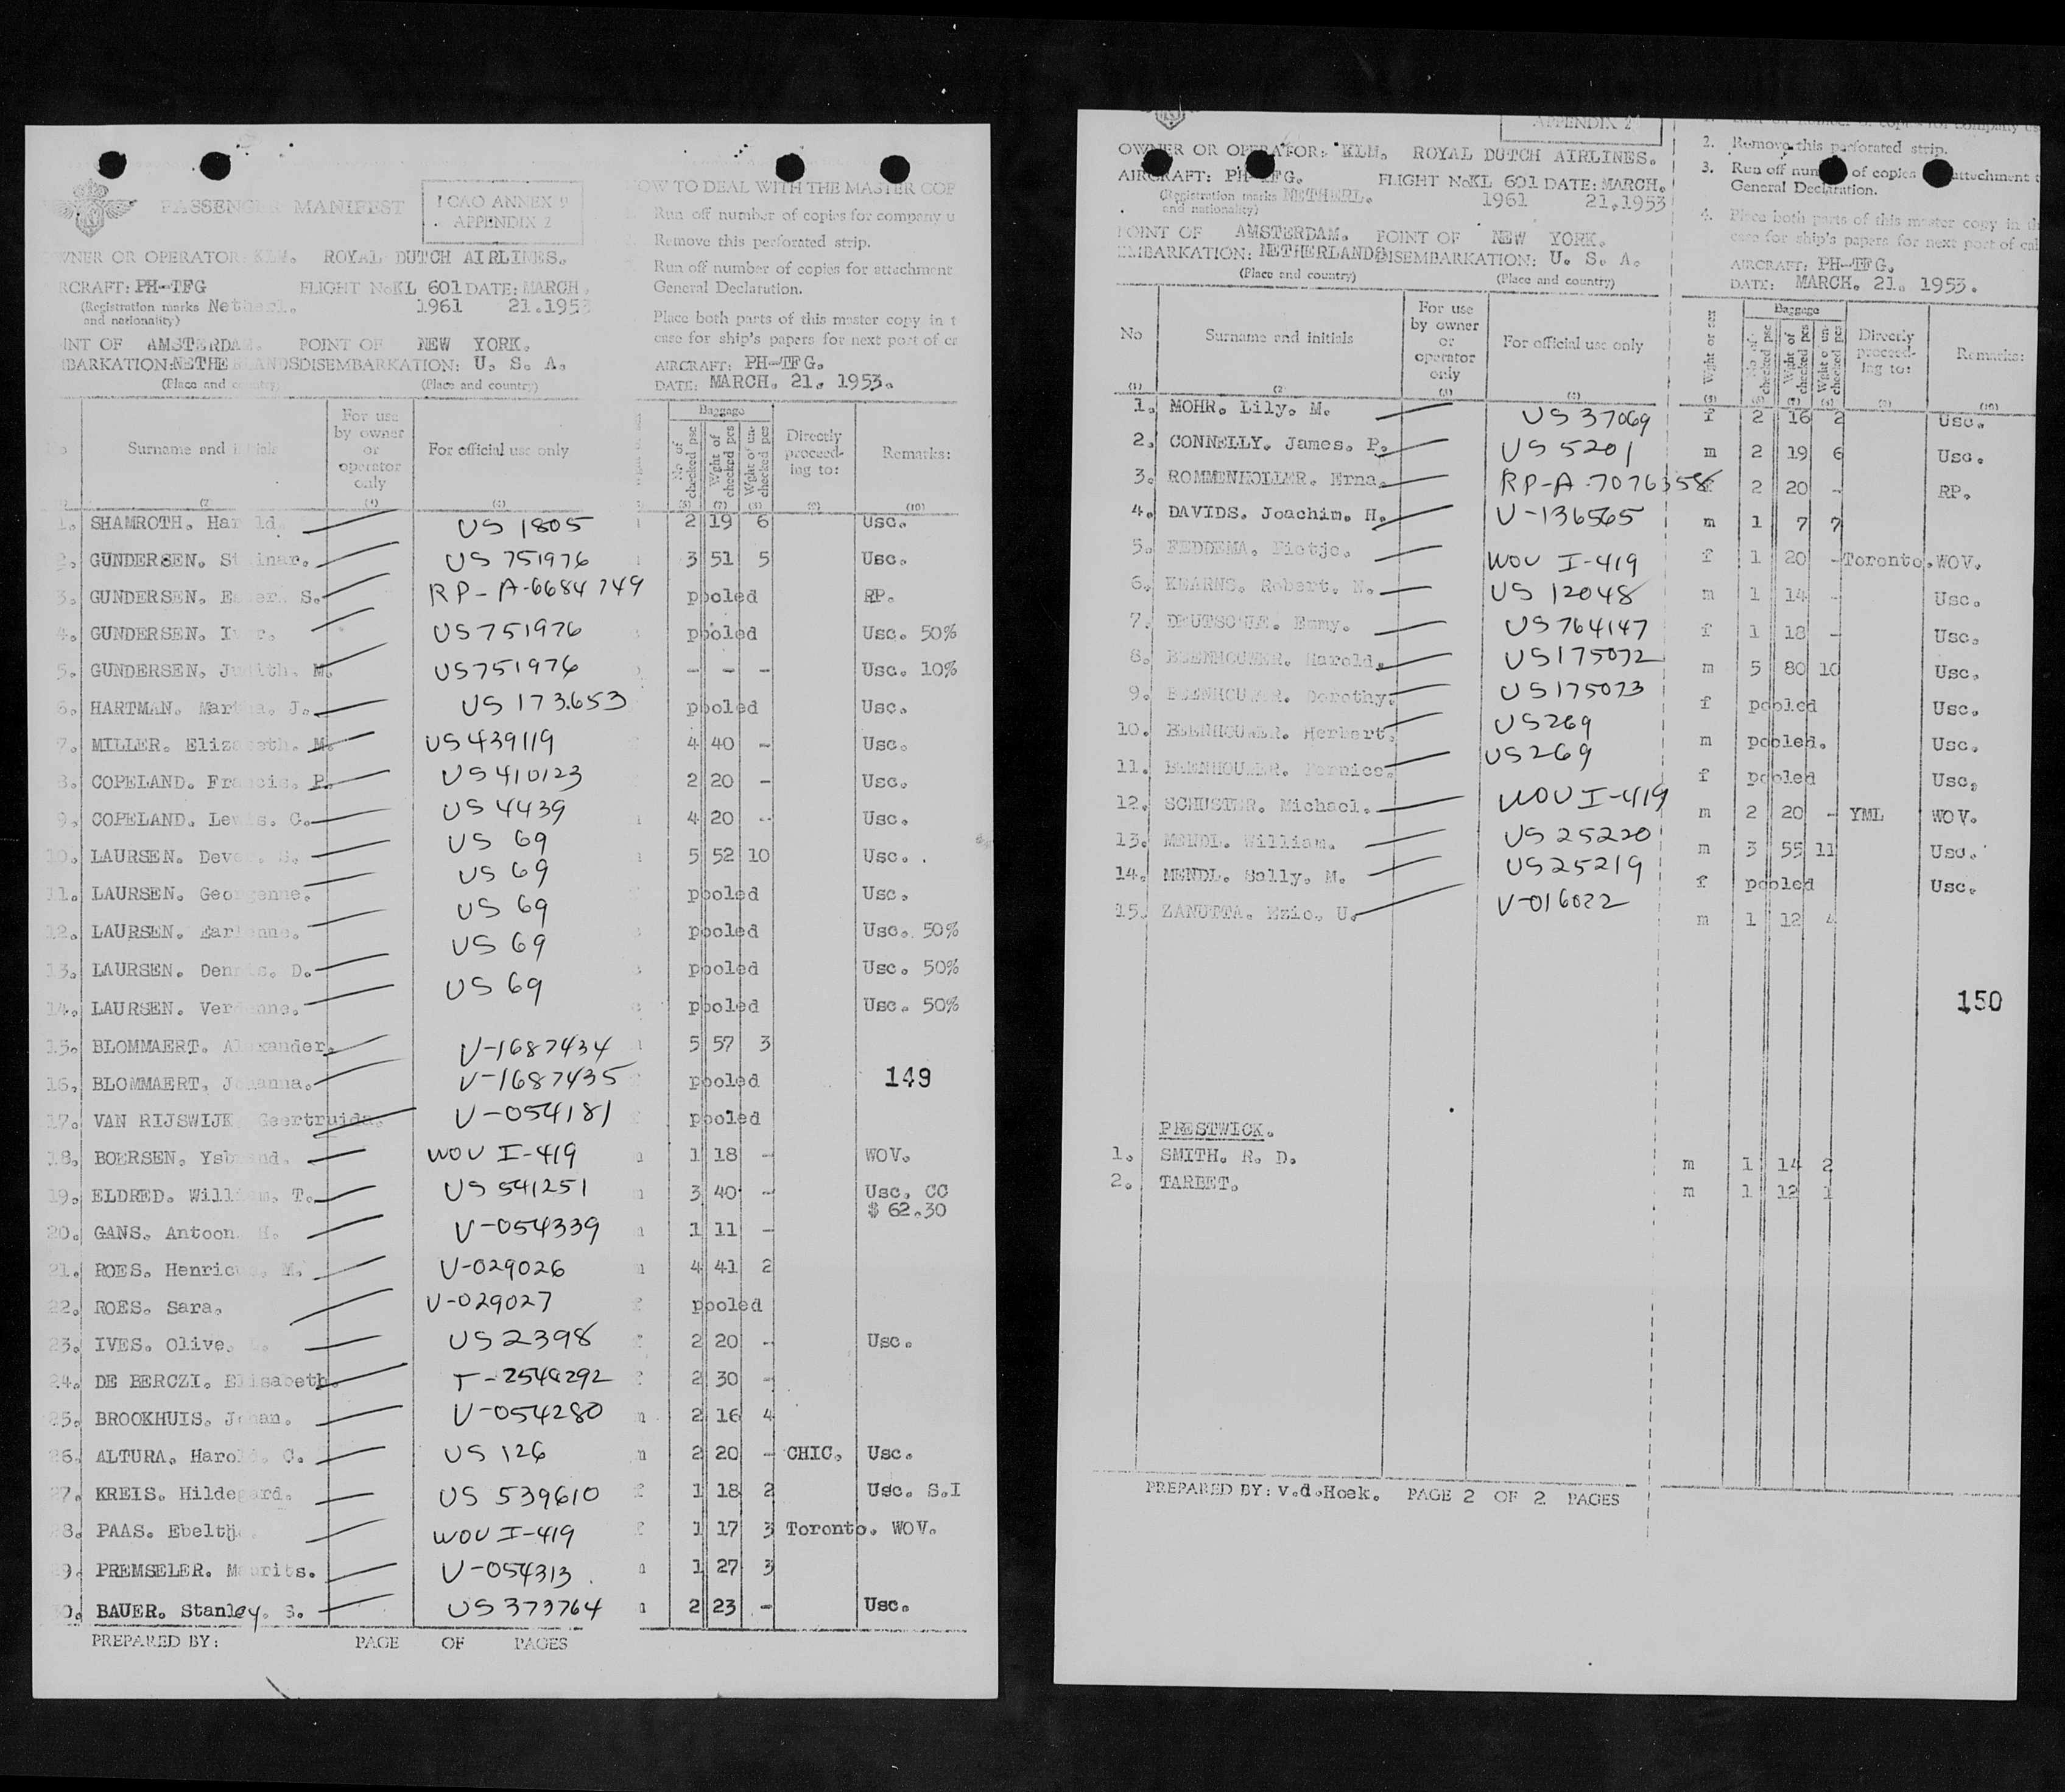 PASSENGER MANIFEST
ICAO ANNEX 9
APPENDIX 2
OWNER OR OPERATOR: KLM. ROYAL DUTCH AIRLINES.
AIRCRAFT: PH-TFG FLIGHT No KL 601 DATE: MARCH.
(Registration marks and nationality) Netherl. 1961 21.1953
POINT OF AMSTERDAM. POINT OF NEW YORK.
EMBARKATION: NETHERLANDS DISEMBARKATION: U. S. A.
(Place and country) (Place and country)
HOW TO DEAL WITH THE MASTER COP
Run off number of copies for company u
Remove this perforated strip.
Run off number of copies for attachment
General Declaration.
Place both parts of this master copy in t
case for ship's papers for next port of ca
AIRCRAFT: PH-TFG.
DATE: MARCH. 21. 1953.
Surname and initials For use by owner or operator only For official use only Baggage No of checked pcs Wght of checked pcs Wght of un-checked pcs Directly proceed-ing to: Remarks:
1. SHAMROTH. Harold. US 1805 2 19 6 Usc.
2. GUNDERSEN. Steinar. US 751976 3 51 5 Usc.
3. GUNDERSEN. Esther. S. RP-A-6684749 pooled RP.
4. GUNDERSEN. US751976 pooled Usc. 50%
5. GUNDERSEN. Judith. M. US751976 - - - Usc. 10%
6. HARTMAN. Martha. J. US 173653 pooled Usc.
7. MILLER. Elizabeth. M. US439119 4 40 - Usc.
8. COPELAND. Francis. P. US410123 2 20 - Usc.
9. COPELAND. Lewis. C. US 4439 4 20 - Usc.
10. LAURSEN. US 69 5 52 10 Usc.
11. LAURSEN. Georgenne. US 69 pooled Usc.
12. LAURSEN. Earlenne. US 69 pooled Usc. 50%
13. LAURSEN. Dennis. D. US 69 pooled Usc. 50%
14. LAURSEN. US 69 pooled Usc. 50%
15. BLOMMAERT. Alexander. V-1687434 5 57 3
16. BLOMMAERT. Johanna. V-1687435 pooled 149
17. VAN RIJSWIJK Geertruida. V-054181 pooled
18. BOERSEN. Ysbrand. WOV I-419 1 18 - WOV.
19. ELDRED. William. T. US 541251 3 40 - Usc. CC
$ 62.30
20. GANS. Antoon. H. V-054339 1 11 -
21. ROES. Henricus. M. V-029026 4 41 2
22. ROES. Sara. V-029027 pooled
23. IVES. Olive. US 2398 2 20 - Usc.
24. DE BERCZI. Elisabeth. T-2548292 2 30 -
25. BROOKHUIS. Johan. V-054280 m 2 16 4
26. ALTURA. Harold. C. US 126 m 2 20 - CHIC. Usc.
27. KREIS. Hildegard. US 539610 f 1 18 2 Usc. S.I
28. PAAS. Ebeltje. WOV I-419 1 17 3 Toronto. WOV.
29. PREMSELER. Maurits. V-054313 1 27 3
30. BAUER. Stanley. S. US 373764 2 23 - Usc.
PREPARED BY: PAGE OF PAGES
APPENDIX 2
OWNER OR OPERATOR: KLM. ROYAL DUTCH AIRLINES.
AIRCRAFT: PH-TFG. FLIGHT No KL 601 DATE: MARCH.
(Registration marks and nationality) NETHERL. 1961 21.1953
POINT OF AMSTERDAM. POINT OF NEW YORK.
EMBARKATION: NETHERLANDS DISEMBARKATION: U. S. A.
(Place and country) (Place and country)
1. Run off number of copies for company us
2. Remove this perforated strip.
3. Run off number of copies attachment t
General Declaration.
4. Place both parts of this master copy in th
case for ship's papers for next port of cal
AIRCRAFT: PH-TFG.
DATE: MARCH. 21. 1953.
No Surname and initials For use by owner or operator only For official use only Wght or sex Baggage No of checked pcs Wght of checked pcs Wght of un-checked pcs Directly proceed-ing to: Remarks:
(1) (2) (3) (4) (5) (6) (7) (8) (9) (10)
1. MOHR. Lily. M. US 37069 f 2 16 2 Usc.
2. CONNELLY. James. P. US 5201 m 2 19 6 Usc.
3. ROMMENHOLLER. Erna. RP-A-7076358 2 20 - RP.
4. DAVIDS. Joachim. H. V-136565 m 1 7 7
5. FEDDEMA. Fietje. WOV I-419 f 1 20 - Toronto. WOV.
6. KEARNS. Robert. N. US 12048 m 1 14 - Usc.
7. DEUTSCHE. Emmy. US764147 f 1 18 - Usc.
8. BEENHOUWER. Harold. US175072 m 5 80 10 Usc.
9. BEENHOUWER. Dorothy. US175073 f pooled Usc.
10. BEENHOUWER. Herbert. US269 m pooled. Usc.
11. BEENHOUWER. Bernice. US269 f pooled Usc.
12. SCHUSTER. Michael. WOV I-419 m 2 20 - YML WOV.
13. MENDL. William. US 25220 m 3 55 11 Usc.
14. MENDL. Sally. M. US25219 f pooled Usc.
15. ZANUTTA. Ezio. U. V-016022 m 1 12 4
150
PRESTWICK.
1. SMITH. R. D. m 1 14 2
2. TARBET. m 1 12 1
PREPARED BY: v.d.Hoek. PAGE 2 OF 2 PAGES